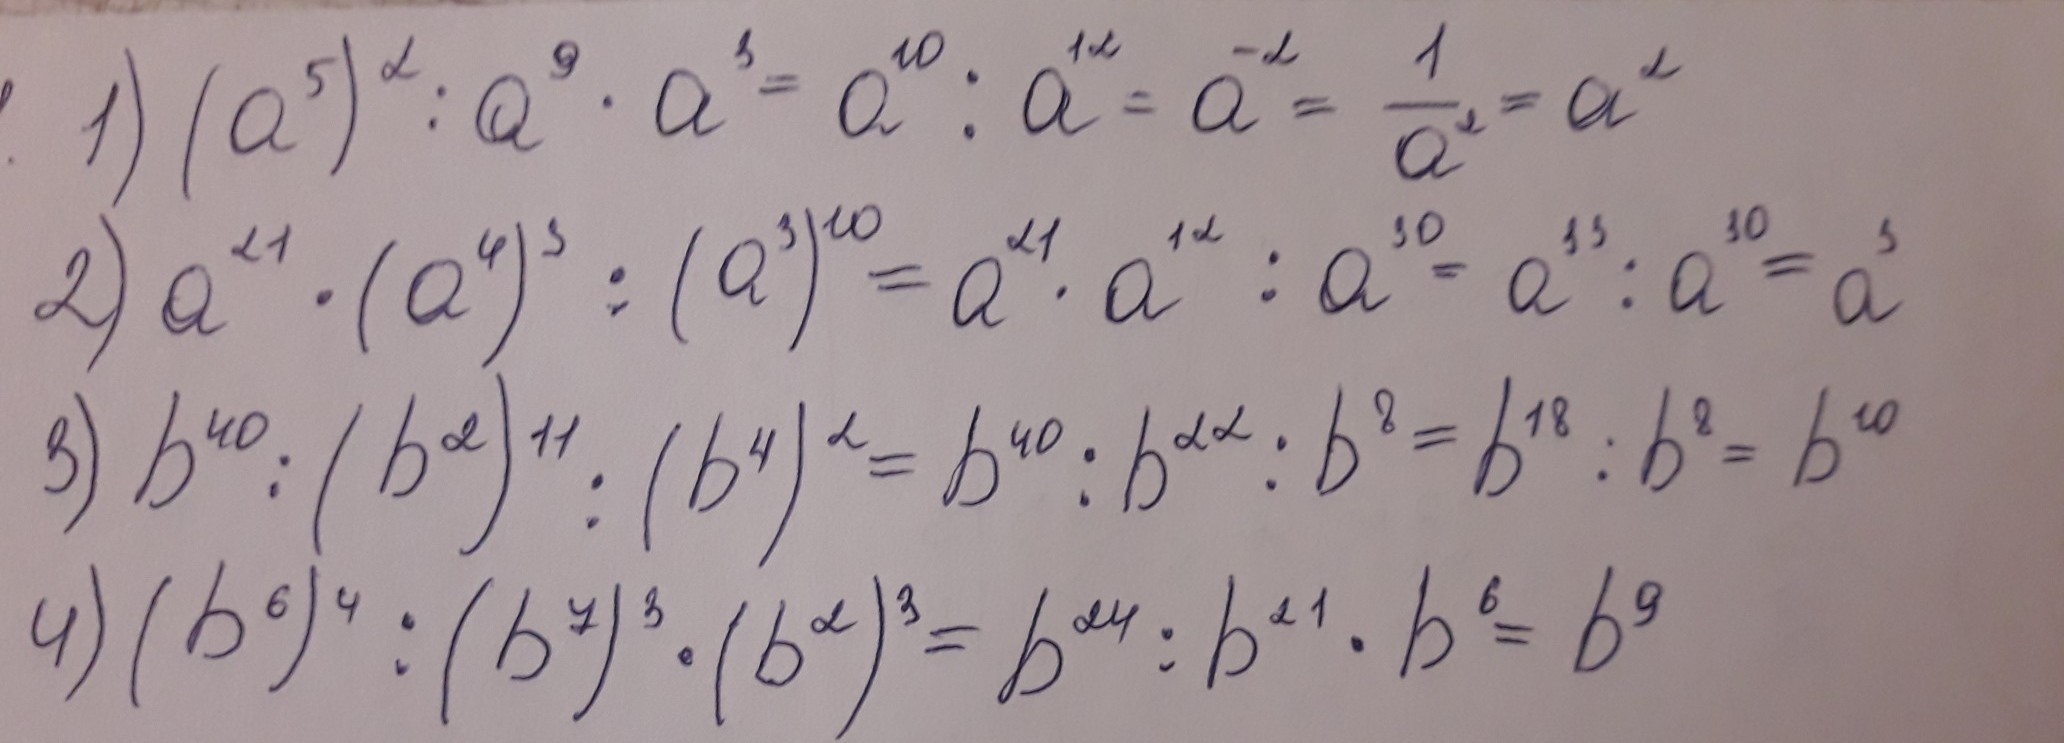 1) (a⁵)² : a⁹ · a³ = a¹⁰ : a¹² = a⁻² = 1/a² = a²
2) a²¹ · (a⁴)³ : (a³)¹⁰ = a²¹ · a¹² : a³⁰ = a³³ : a³⁰ = a³
3) b⁴⁰ : (b²)¹¹ : (b⁴)² = b⁴⁰ : b²² : b⁸ = b¹⁸ : b⁸ = b¹⁰
4) (b⁶)⁴ : (b⁷)³ · (b²)³ = b²⁴ : b²¹ · b⁶ = b⁹